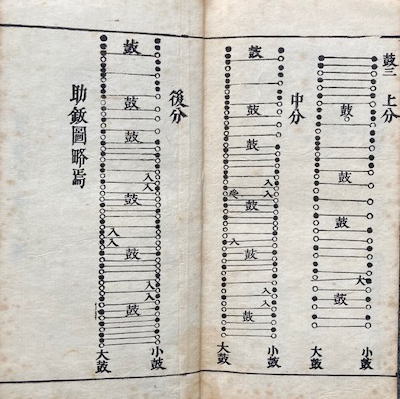 鼓三 上分
小鼓
大
鼓
鼓
鼓
鼓
大鼓
中分
入
入
入
入
小鼓
鼓
鼓
鼓
鼓
鼓
鼓
入
大鼓
後分
入
入
入
入
小鼓
鼓
鼓
鼓
鼓
鼓
鼓
入
入
大鼓
助鈸圖略焉